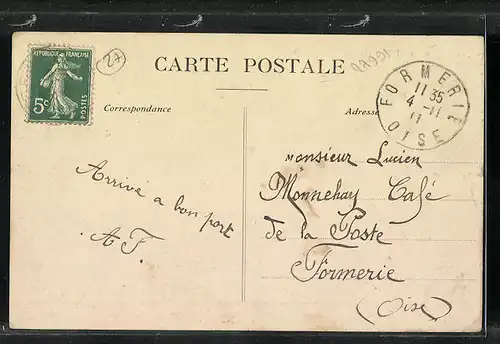 REPUBLIQUE FRANÇAISE
5c
POSTES
27
CARTE POSTALE
Correspondance
Adresse
FORMERIE
11 35
4 -11
11
OISE
Arrivé a bon port
A F.
Monsieur Lucien
Monnehay Café
de la Poste
Formerie
(Oise)